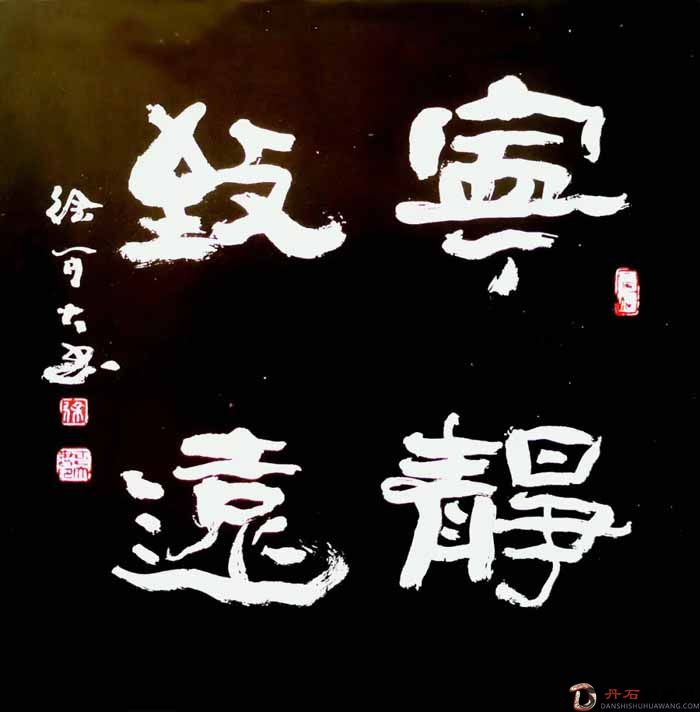 寧靜
致遠
徐 大书
徐
丹石
DANSHISHUHUAWANG.COM